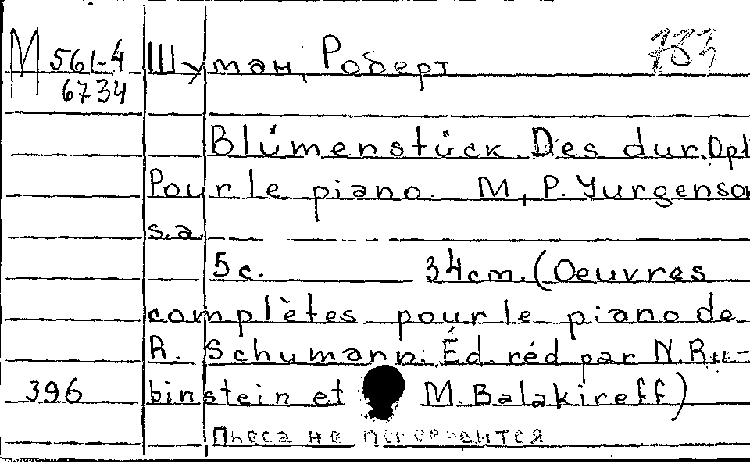 М 561-4 Шуман, Роберт 733
6734
Blümenstück. Des dur. Op1
Pour le piano. M., P. Yurgenson
s.a
5 c. 34 cm. (Oeuvres
complètes pour le piano de
R. Schumann. Éd. réd par N. Ru-
396 binstein et M. Balakireff)
Пьеса не